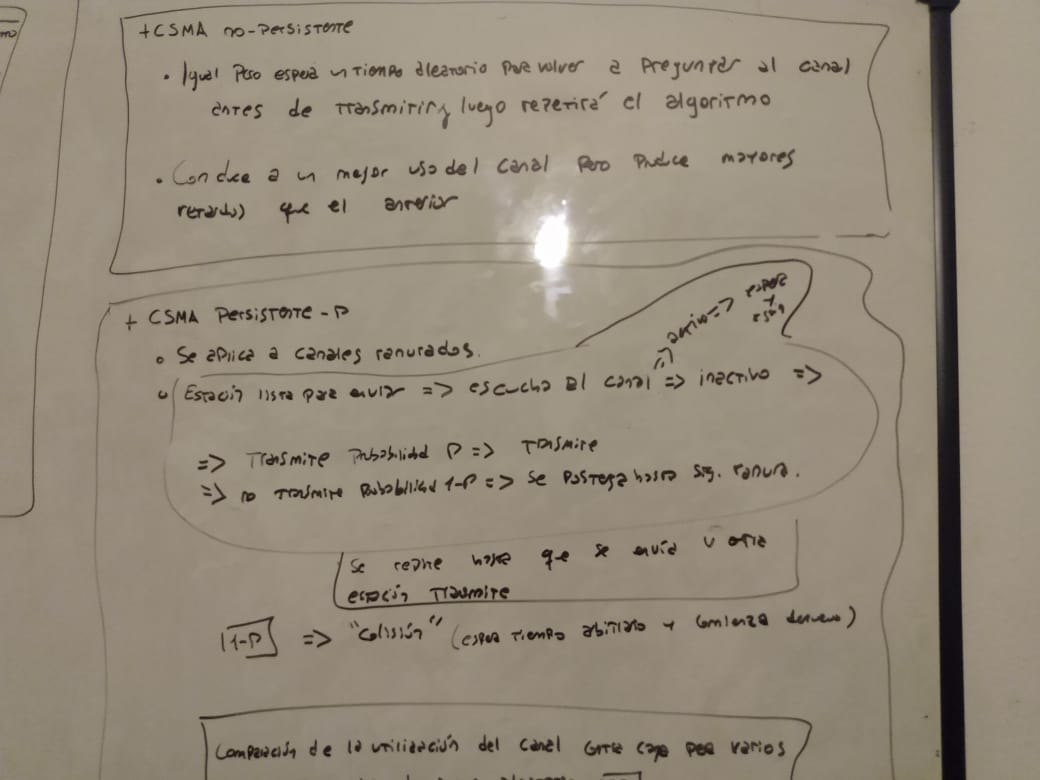 + CSMA no-Persistente
• Igual Pero espera un Tiempo aleatorio Para volver a Preguntar al canal
antes de Transmitir y luego repetirá el algoritmo
• Conduce a un mejor uso del canal Pero Produce mayores
retardos que el anterior
+ CSMA Persistente - P
• Se aplica a canales ranurados.
=> activo => espera
y
• Estación lista para enviar => escucha el canal => inactivo =>
=> Transmite Probabilidad P => Transmite
=> no Transmite Probabilidad 1-P => Se Postega hasta sig. ranura.
Se repite hasta que se envía u otra
estación Transmite
1-P => "Colisión" (espera Tiempo arbitrario y comienza de nuevo)
Comparación de la utilización del canal carga para varios